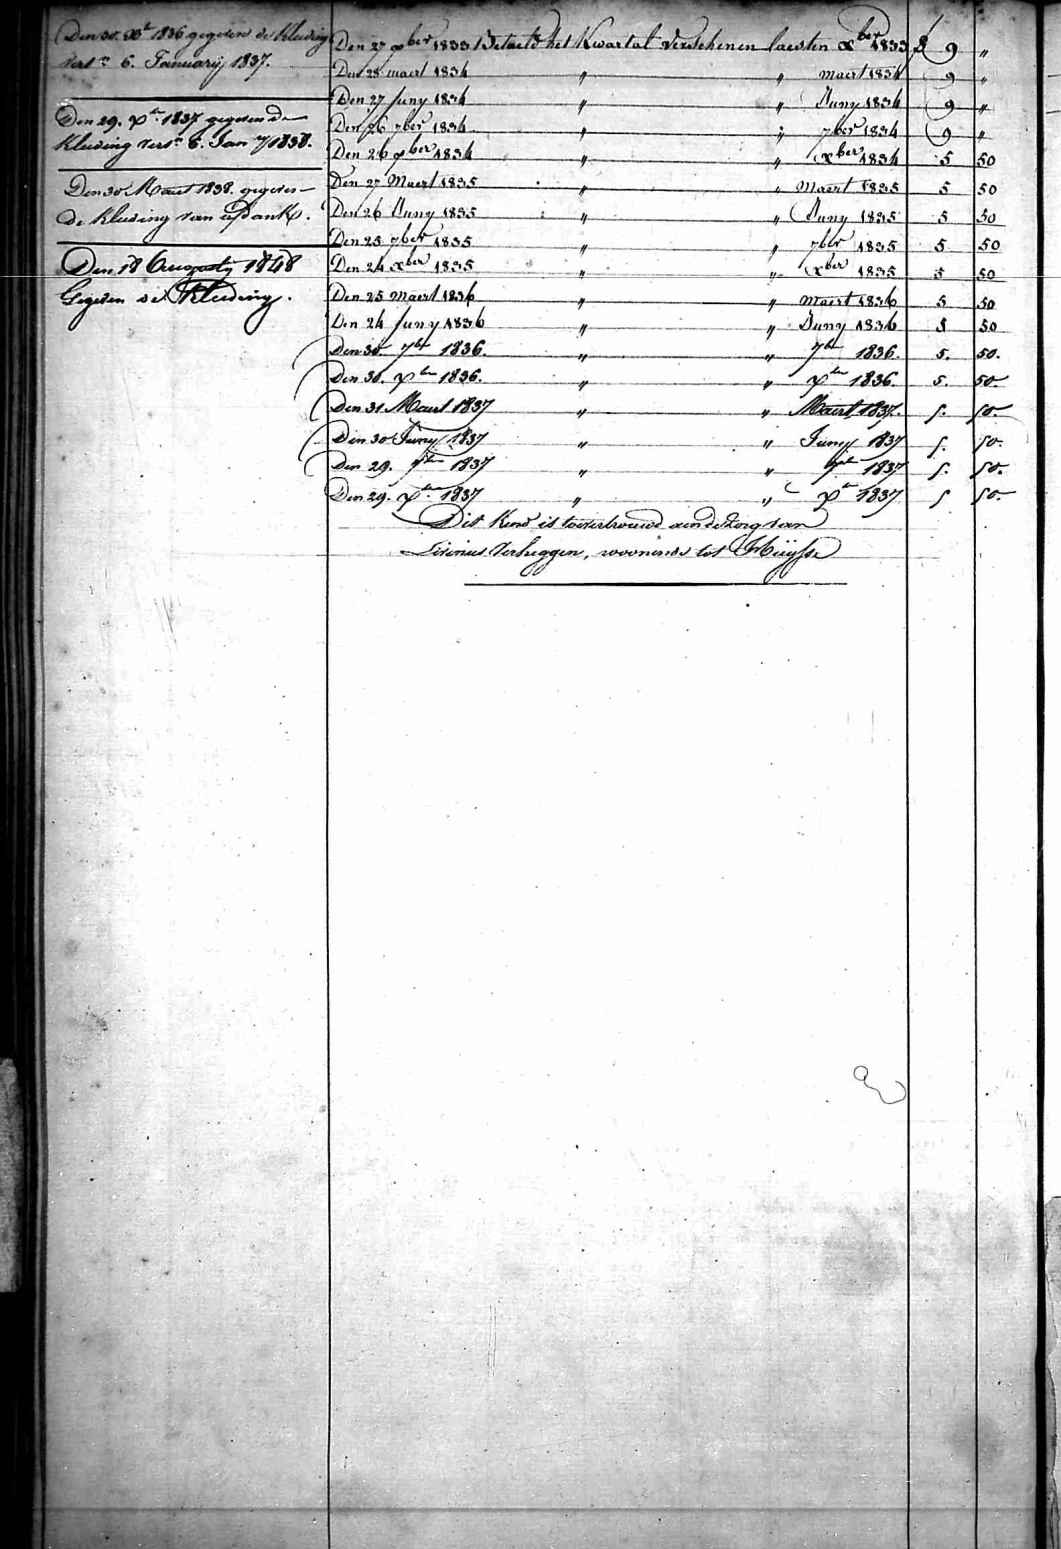 Den 30. Xbr 1836 gegeven de kleeding
vers.n 6. Januarij 1837.
Den 29. Xbr 1837 gegeven de
Kleeding vers.n 6. Jan.y 1838.
Den 30 Maert 1838. gegeven
de kleeding van
Den 18 Augusty 1848
Gegeven de Kleeding.
Den 27 xber 1833 Betaeld het Kwartal verschenen laesten xber 1833 f 9 "
Den 28 maert 1834 " " maert 1834 9 "
Den 27 Juny 1834 " " Juny 1834 9 "
Den 26 7ber 1834 " " 7ber 1834 9 "
Den 26 xber 1834 " " xber 1834 5 50
Den 27 Maert 1835 " " Maert 1835 5 50
Den 26 Juny 1835 " " Juny 1835 5 50
Den 25 7ber 1835 " " 7ber 1835 5 50
Den 24 xber 1835 " " xber 1835 5 50
Den 25 Maert 1836 " " Maert 1836 5 50
Den 24 Juny 1836 " " Juny 1836 5 50
Den 30. 7br 1836. " " 7br 1836. 5. 50.
Den 30. Xbr 1836. " " Xbr 1836. 5. 50.
Den 31 Maert 1837 " " Maert 1837. 5. 50.
Den 30 Juny 1837 " " Juny 1837 5. 50.
Den 29. 7br 1837 " " 7br 1837 5. 50.
Den 29. Xbr 1837 " " Xbr 1837 5 50.
Dit Kind is toevertrouwd aen de zorg van
Livinus Verheggen, woonende tot Huysse